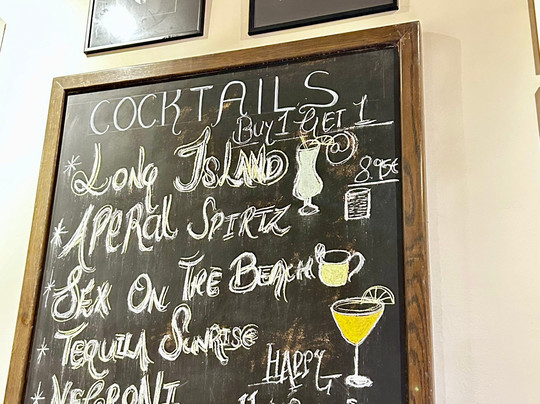 COCKTAILS
BUY 1 GET 1
* LONG ISLAND
8.95€
* APERAL SPIRTZ
* SEX ON THE BEACH
* TEQUILA SUNRISE
HAPPY
* NEGRONI